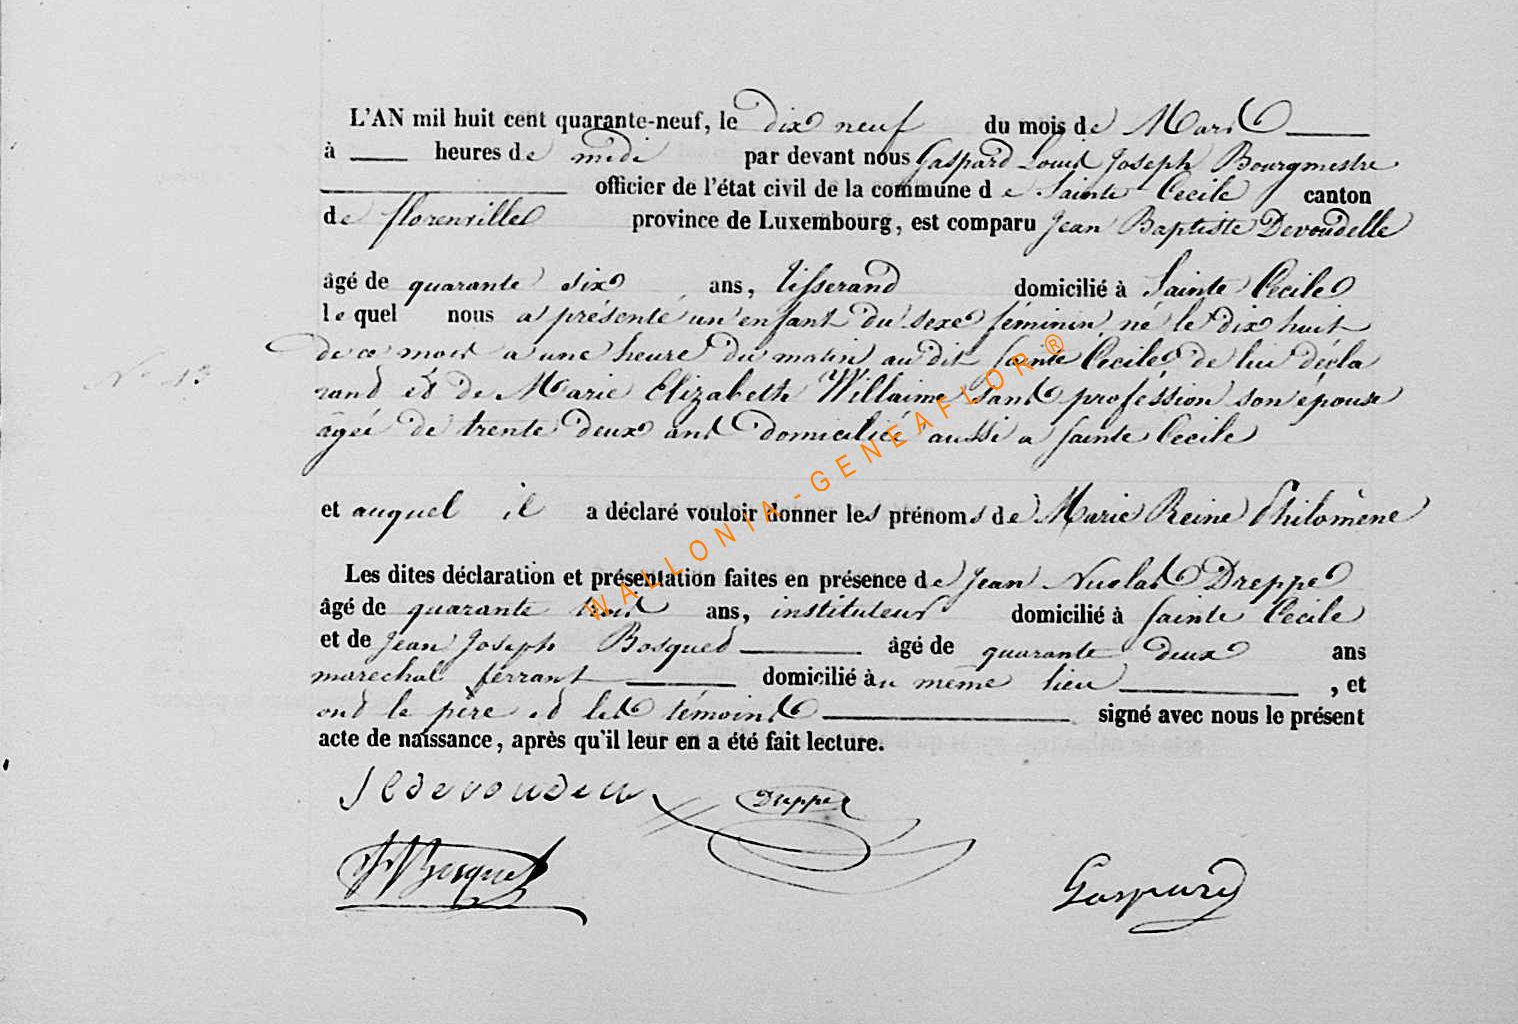 L'AN mil huit cent quarante-neuf, le dix neuf du mois de Mars
à heures de midi par devant nous Gaspard Louis Joseph Bourgmestre
officier de l'état civil de la commune de Sainte Cecile canton
de florenville province de Luxembourg, est comparu Jean Baptiste Devoudelle
âgé de quarante six ans, tisserand domicilié à Sainte Cecile
lequel nous a présenté un enfant du sexe féminin né le dix huit
de ce mois a une heure du matin au dit Sainte Cecile de lui décla
rand et de Marie Elizabeth Willaime sans profession son épouse
âgée de trente deux ans domiciliée aussi a Sainte Cecile
N° 13
et auquel il a déclaré vouloir donner les prénoms de Marie Reine Philomène
Les dites déclaration et présentation faites en présence de Jean Nicolas Dreppe
âgé de quarante trois ans, instituteur domicilié à Sainte Cecile
et de Jean Joseph Bosqued âgé de quarante deux ans
marechal ferrant domicilié au même lieu , et
ond le père et les témoins signé avec nous le présent
acte de naissance, après qu'il leur en a été fait lecture.
Dreppe
Bosquet
Gaspard
WALLONIA-GENEAFLOR®